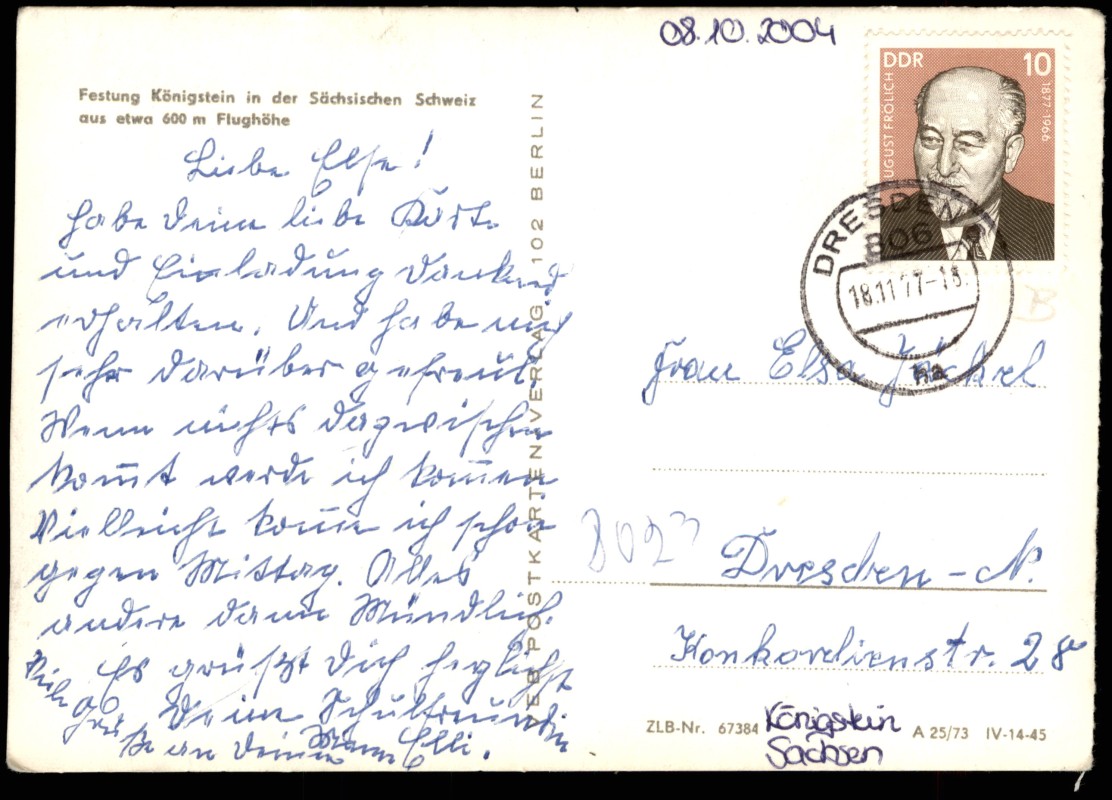 08.10.2004
Festung Königstein in der Sächsischen Schweiz
aus etwa 600 m Flughöhe
Liebe Else!
habe Deine liebe Karte
und Einladung dankend
erhalten. Und habe mich
sehr darüber gefreut.
Wenn nichts dazwischen
kom̅t werde ich kom̅en
Vielleicht kom̅e ich schon
gegen Mittag. Alles
andere dann Mündlich.
Es grüßt Dich herzlichst
Deine Schulfreundin
Elli.
Viele
Grüße an Deinen Mann
VEB POSTKARTENVERLAG, 102 BERLIN
DDR 10
AUGUST FRÖLICH
1877-1966
DRESDEN
806
18.11.77-18
na
B
Frau Elsa Jäckel
8023
Dresden-N.
Konkordienstr. 28
ZLB-Nr. 67384
Königstein
Sachsen
A 25/73 IV-14-45